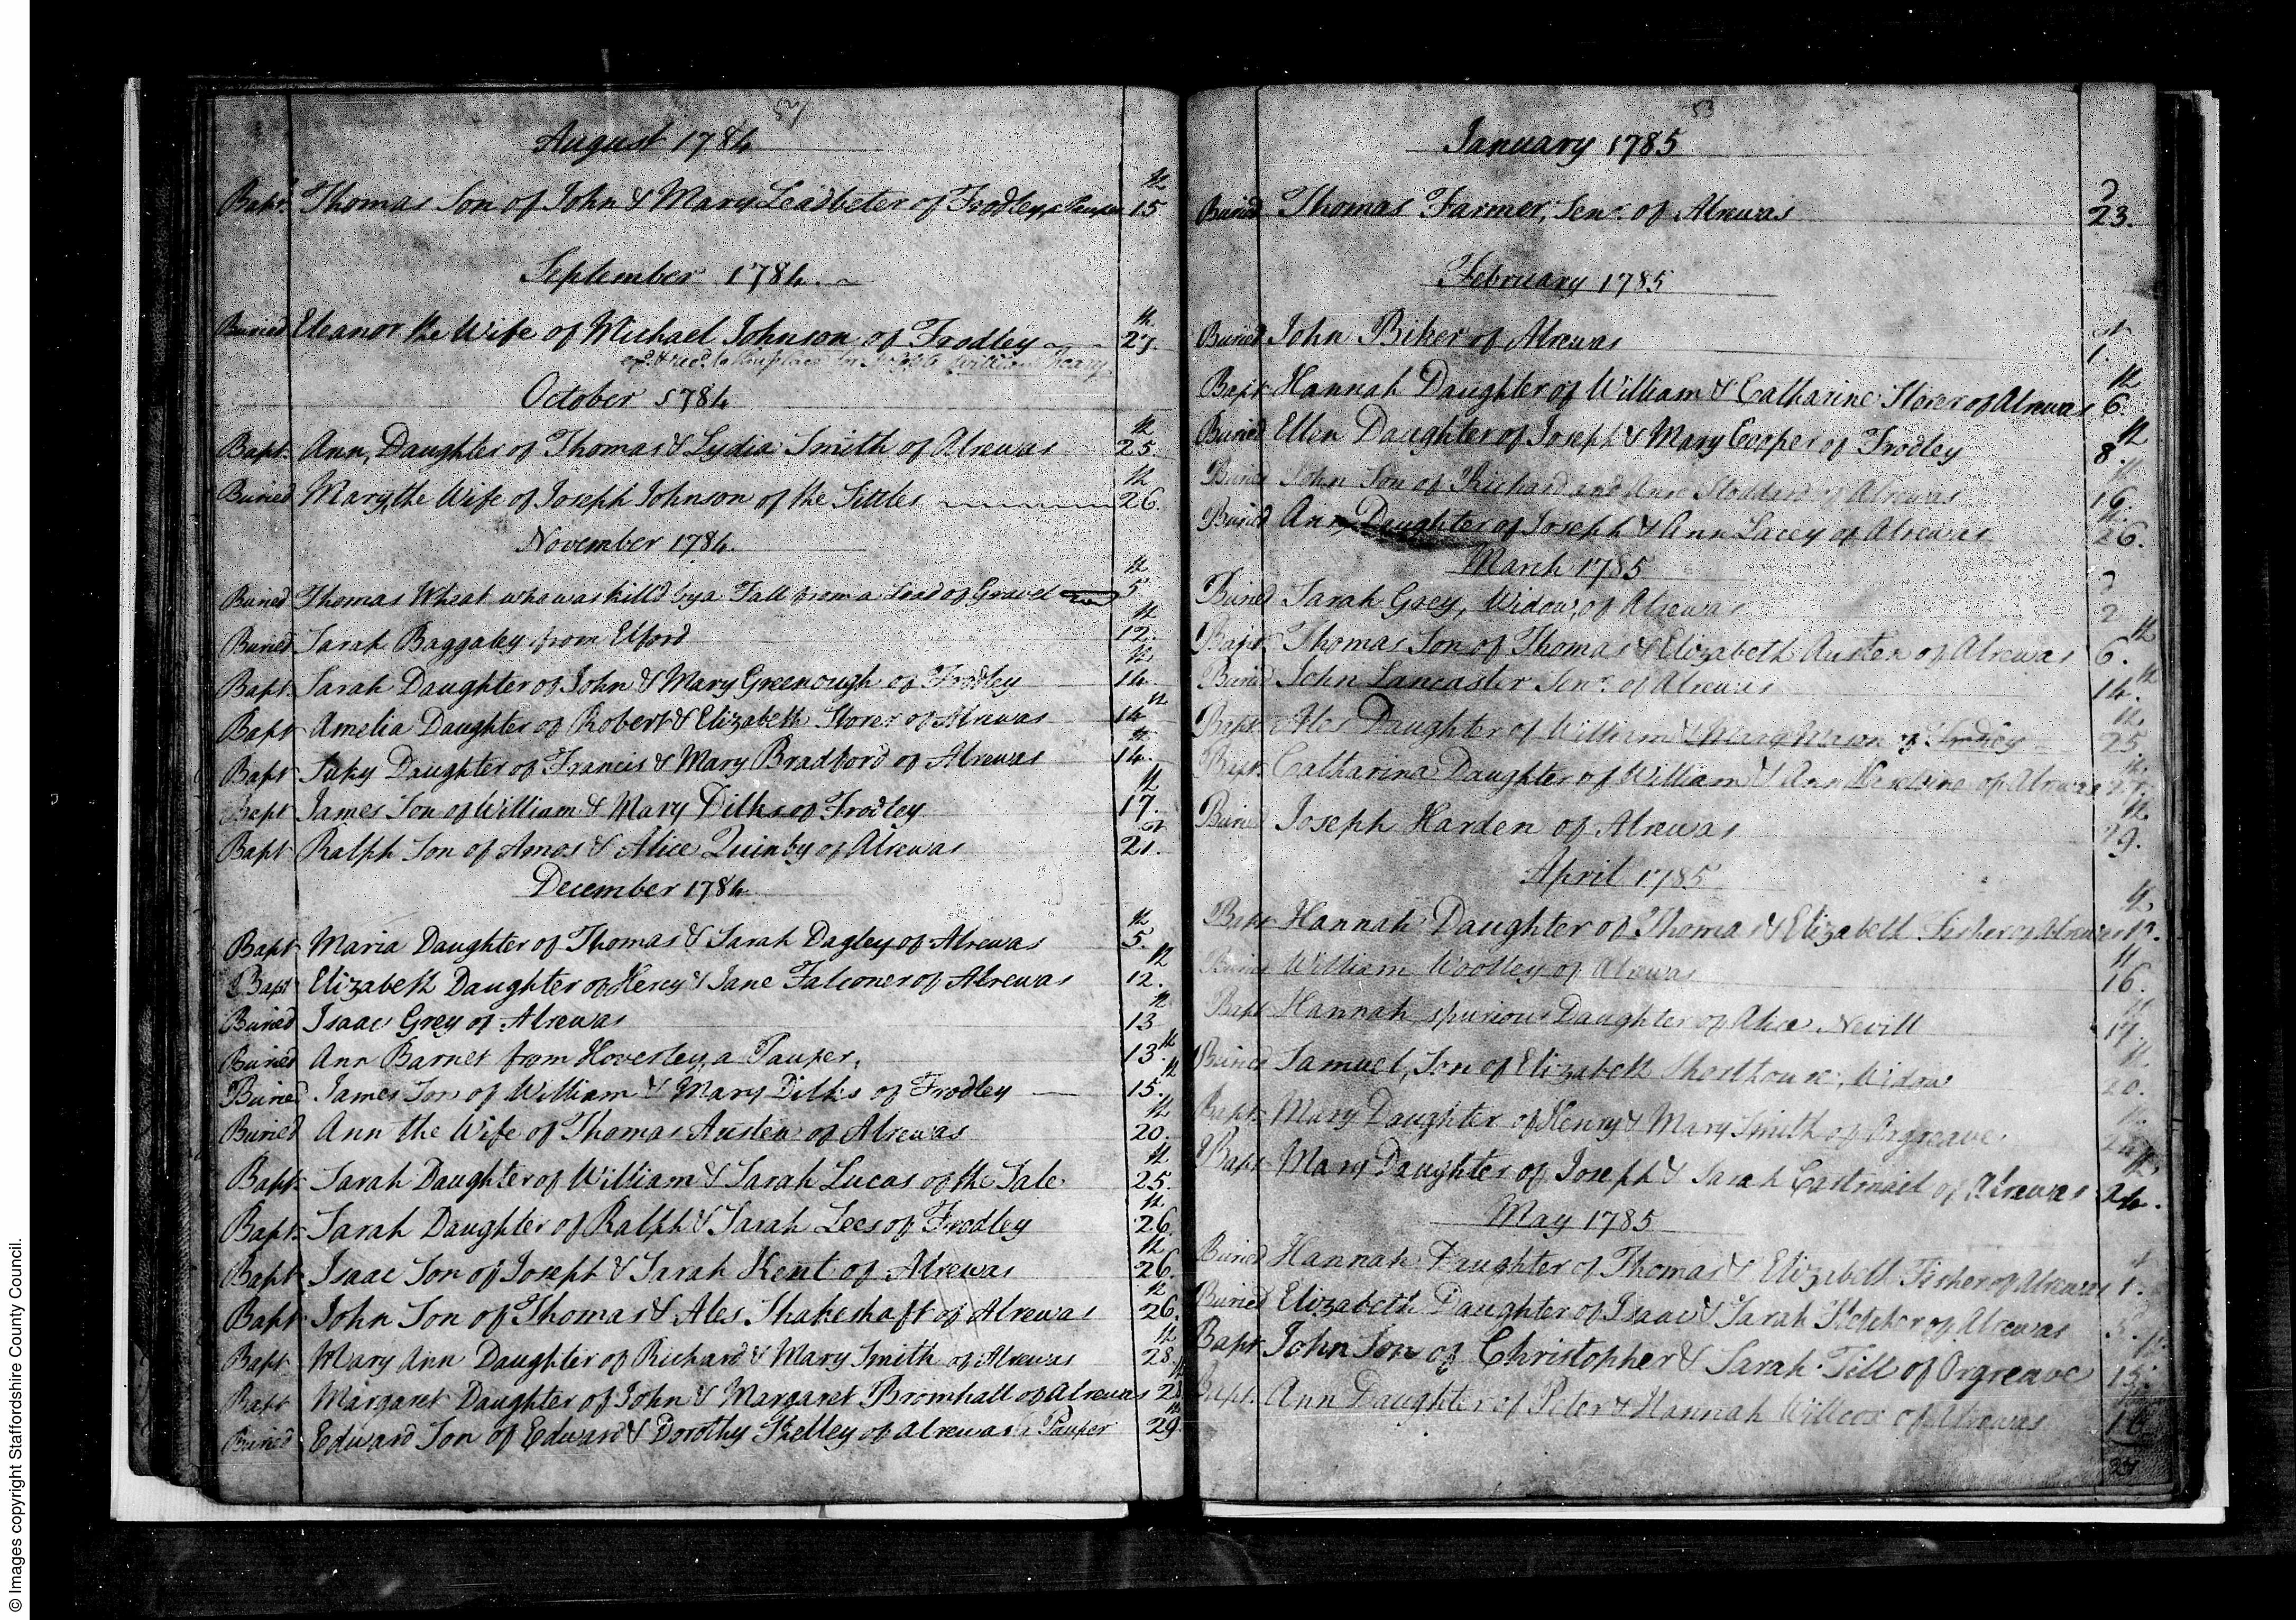 August 1784
Bapt. Thomas Son of John & Mary Leadbeter of Frodley, a Pauper 15th
September 1784.
Buried Eleanor the Wife of Michael Johnson of Frodley 27th
William
October 1784
Bapt. Ann, Daughter of Thomas & Lydia Smith of Alrewas 25th
Buried Mary, the Wife of Joseph Johnson of the Sittles 26th
November 1784.
Buried Thomas Wheat who was kill'd by a Fall from a Load of Gravel 5th
Buried Sarah Baggaley from Elford 12th
Bapt. Sarah Daughter of John & Mary Greenough of Frodley 14th
Bapt Amelia Daughter of Robert & Elizabeth Storer of Alrewas 14th
Bapt Suky Daughter of Francis & Mary Bradford of Alrewas 14th
Bapt James Son of William & Mary Dilks of Frodley 17th
Bapt Ralph Son of Amos & Alice Quinby of Alrewas 21st
December 1784
Bapt Maria Daughter of Thomas & Sarah Dagley of Alrewas 5th
Bapt Elizabeth Daughter of Henry & Jane Falconer of Alrewas 12th
Buried Isaac Grey of Alrewas 13th
Buried Ann Barnet from Hoverley, a Pauper. 13th
Buried James Son of William & Mary Dilks of Frodley 15th
Buried Ann the Wife of Thomas Austen of Alrewas 20th
Bapt. Sarah Daughter of William & Sarah Lucas of the Sale 25th
Bapt. Sarah Daughter of Ralph & Sarah Lees of Frodley 26th
Bapt Isaac Son of Joseph & Sarah Kent of Alrewas 26th
Bapt John Son of Thomas & Ales Shakeshaft of Alrewas 26th
Bapt Mary Ann Daughter of Richard & Mary Smith of Alrewas 28th
Bapt Margaret Daughter of John & Margaret Bromhall of Alrewas 28th
Buried Edward Son of Edward & Dorothy Shelley of Alrewas, Pauper 29th
53
January 1785
Buried Thomas Farmer, Senr. of Alrewas 23d.
February 1785
Buried John Biker of Alrewas 1st.
Bapt. Hannah Daughter of William & Catharine Storer of Alrewas 6th
Buried Ellen Daughter of Joseph & Mary Cooper of Frodley 8th
Buried John Son of Richard and Ann Stoddard of Alrewas 16th
Buried Ann, Daughter of Joseph & Ann Lacey of Alrewas 26th.
March 1785
Buried Sarah Grey, Widow, of Alrewas 2d
Bapt. Thomas Son of Thomas & Elizabeth Austen of Alrewas 6th.
Buried John Lancaster Senr. of Alrewas 14th.
Bapt. Ales Daughter of William & Mary of Frodley 25th
Bapt. Catharina Daughter of William & Ann of Alrewas
Buried Joseph Harden of Alrewas 29th.
April 1785
Bapt Hannah Daughter of Thomas & Elizabeth Fisher of Alrewas
Buried William Woolley of Alrewas 16th.
Bapt Hannah spurious Daughter of Alice Nevill 17th
Buried Samuel, Son of Elizabeth Shorthouse, Widow 20th.
Bapt. Mary Daughter of Henry & Mary Smith of Orgreave 24th
Bapt. Mary Daughter of Joseph & Sarah Cartmail of Alrewas 24th.
May 1785
Buried Hannah Daughter of Thomas & Elizabeth Fisher of Alrewas 1st
Buried Elizabeth Daughter of Isaac & Sarah Fletcher of Alrewas 5th
Bapt. John Son of Christopher & Sarah Till of Orgreave 15th
Bapt. Ann Daughter of Peter & Hannah Willcox of Alrewas
© Images copyright Staffordshire County Council.